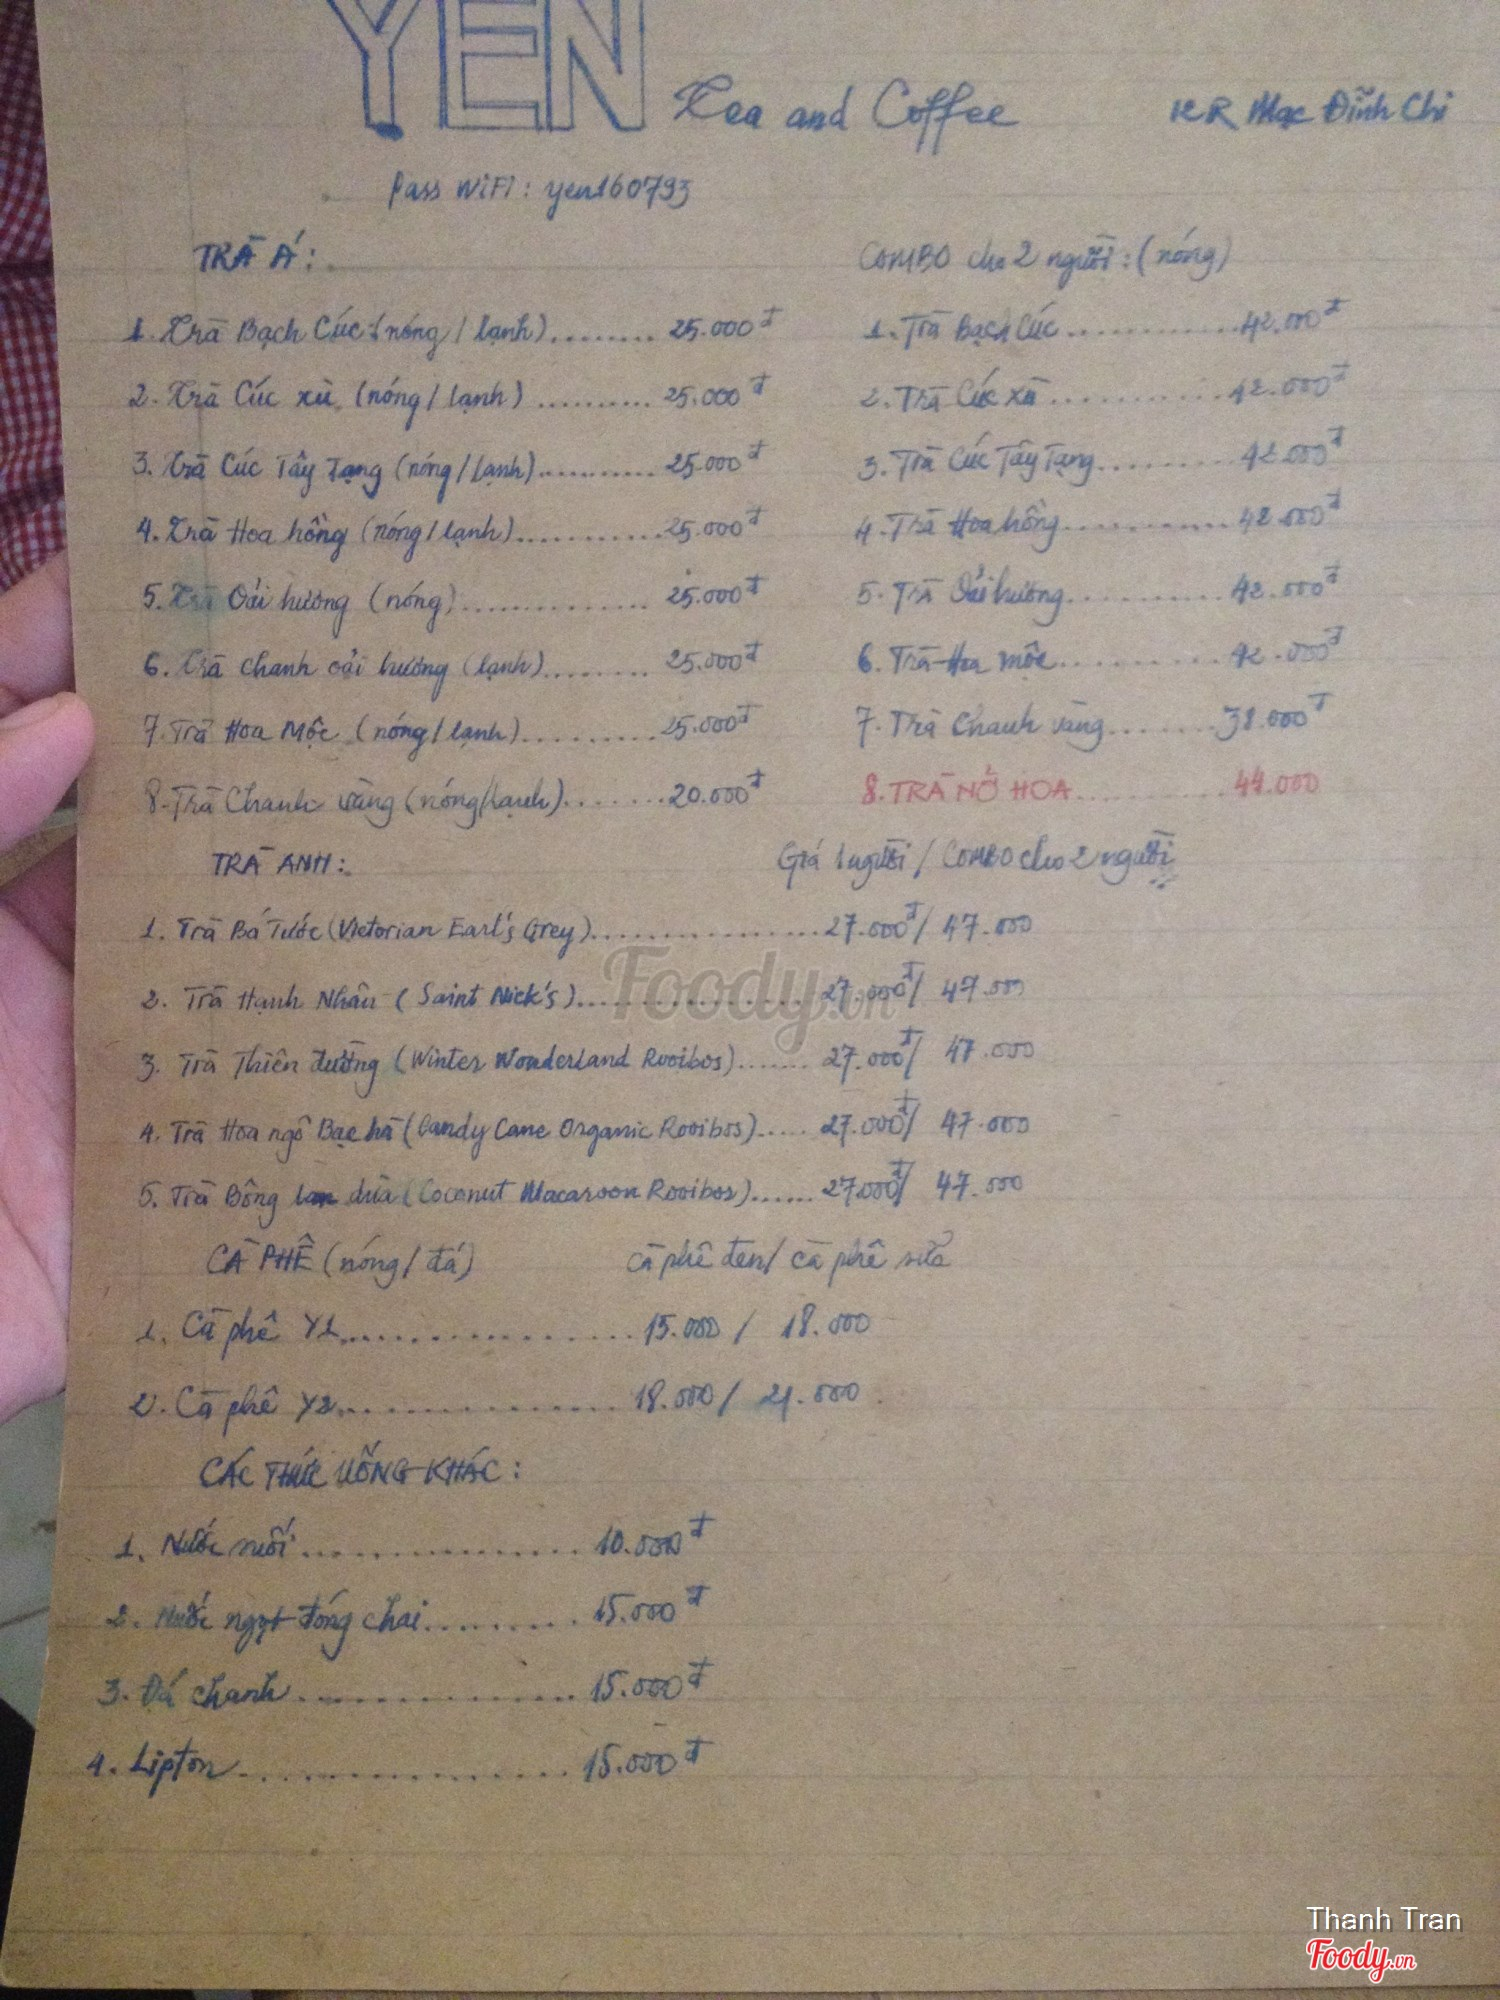 YEN Tea and Coffee KR Mạc Đĩnh Chi
Pass WiFi: yen160793
TRÀ Á:
1. Trà Bạch Cúc (nóng/lạnh)........ 25.000đ
2. Trà Cúc xù (nóng/lạnh).......... 25.000đ
3. Trà Cúc Tây Tạng (nóng/lạnh).......... 25.000đ
4. Trà Hoa hồng (nóng/lạnh)............ 25.000đ
5. Trà Oải hương (nóng).............. 25.000đ
6. Trà chanh oải hương (lạnh)........ 25.000đ
7. Trà Hoa Mộc (nóng/lạnh)......... 25.000đ
8. Trà Chanh vàng (nóng/lạnh)....... 20.000đ
COMBO cho 2 người: (nóng)
1. Trà Bạch Cúc............ 42.000đ
2. Trà Cúc xù............ 42.000đ
3. Trà Cúc Tây Tạng......... 42.000đ
4. Trà Hoa hồng............ 42.000đ
5. Trà Oải hương.......... 42.000đ
6. Trà Hoa mộc........... 42.000đ
7. Trà Chanh vàng....... 38.000đ
8. TRÀ NỞ HOA........... 44.000
TRÀ ANH: Giá 1 người / COMBO cho 2 người
1. Trà Bá Tước (Victorian Earl's Grey)................ 27.000đ/ 47.000
2. Trà Hạnh Nhân (Saint Nick's)................ 27.000đ/ 47.000
3. Trà Thiên đường (Winter Wonderland Rooibos)....... 27.000đ/ 47.000
4. Trà Hoa ngô Bạc hà (Candy Cane Organic Rooibos)..... 27.000đ/ 47.000
5. Trà Bông lan dừa (Coconut Macaroon Rooibos)...... 27.000đ/ 47.000
CÀ PHÊ (nóng/ đá) cà phê đen/ cà phê sữa
1. Cà phê Y1................ 15.000 / 18.000
2. Cà phê Y2............... 18.000 / 21.000
CÁC THỨC UỐNG KHÁC:
1. Nước suối............... 10.000đ
2. Nước ngọt đóng chai......... 15.000đ
3. Đá chanh............... 15.000đ
4. Lipton................. 15.000đ
Foody.vn
Thanh Tran
Foody.vn